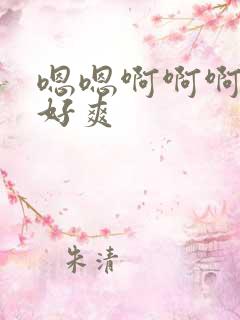 嗯嗯啊啊啊
好爽
朱清